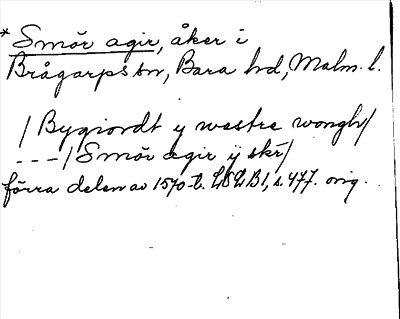 * Smör agir, åker i
Brågarps sn, Bara hd, Malm. l.
/ Bygiordt y westre wongh/
---/ Smör agir ÿ skr/
förra delen av 1570-t. B1, s. 477. orig.